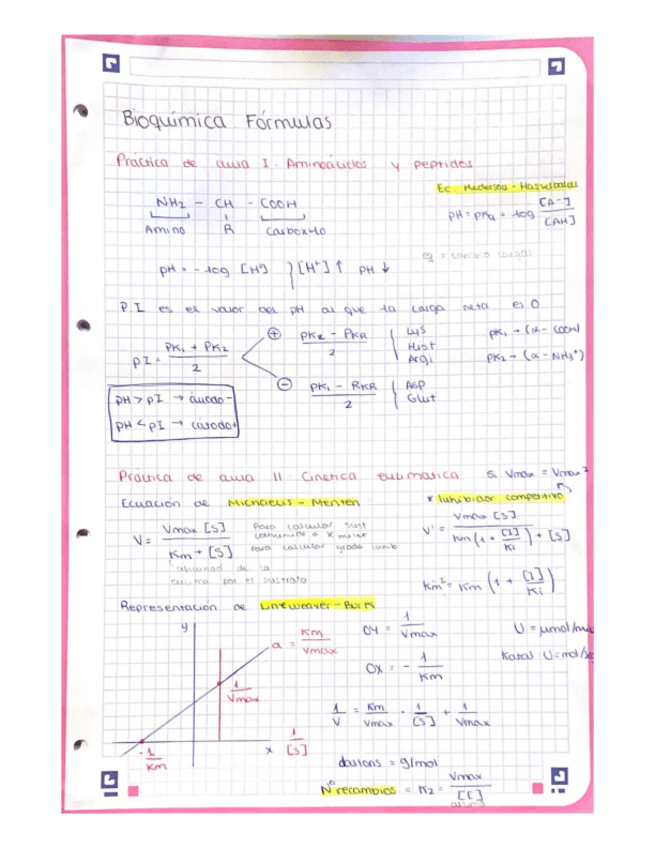 Bioquímica Fórmulas
Práctica de aula I. Aminoácidos y peptidos
Ec. Henderson - Hasselbalch
NH2 - CH - COOH
Amino R Carboxilo
pH = pKa + log [A-] / [AH]
eq = cambio cargas
pH = - log [H+] } [H+] ↑ pH ↓
PI es el valor del pH al que la carga neta es 0
pI = pK1 + pK2 / 2
⊕ pK2 - pKR / 2 { Lis Hist Argi
⊖ pK1 - RKR / 2 { Asp Glut
pK1 → (α - COOH)
pK2 → (α - NH3+)
pH > pI → ánodo -
pH < pI → cátodo +
Práctica de aula II Cinética enzimática
Si Vmax = Vmax'
Ecuación de Michaelis - Menten
* Inhibidor competitivo
V = Vmax [S] / Km + [S]
Para calcular
para calcular grado inhib
afinidad de la
enzima por el sustrato
V' = Vmax [S] / Km (1 + [I] / Ki) + [S]
Km' = Km (1 + [I] / Ki)
Representación de Lineweaver - Burk
y
a = Km / Vmax
1 / Vmax
- 1 / Km
x 1 / [S]
OY = 1 / Vmax
OX = - 1 / Km
U = μmol/min
Katal U = mol/sg
1 / V = Km / Vmax · 1 / [S] + 1 / Vmax
daltons = g/mol
Nº recambios = K2 = Vmax / [E]